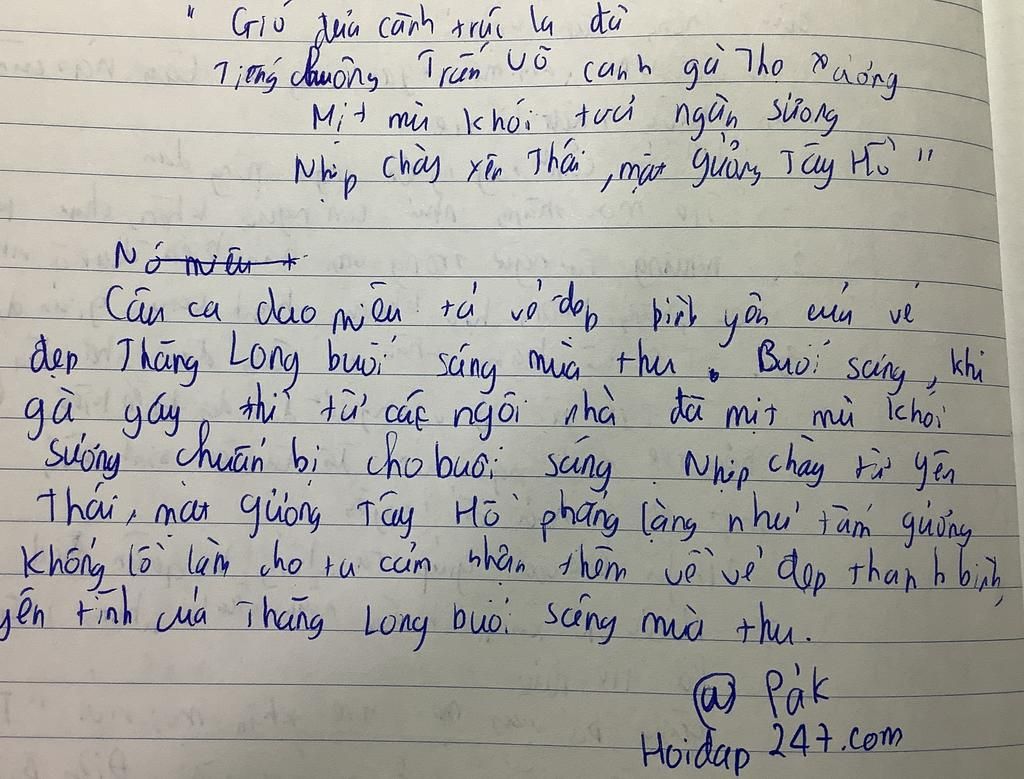 " Gió đưa cành trúc la đà
Tiếng chuông Trấn Võ canh gà Thọ Xương
Mịt mù khói toả ngàn sương
Nhịp chày Yên Thái, mặt gương Tây Hồ "
Nó miêu t
Câu ca dao miêu tả vẻ đẹp bình yên của vẻ
đẹp Thăng Long buổi sáng mùa thu. Buổi sáng, khi
gà gáy thì từ các ngôi nhà đã mịt mù khói
sương chuẩn bị cho buổi sáng. Nhịp chày từ Yên
Thái, mặt gương Tây Hồ phẳng lặng như tấm gương
khổng lồ làm cho ta cảm nhận thêm về vẻ đẹp thanh bình,
yên tĩnh của Thăng Long buổi sáng mùa thu.
@ Pák
Hoidap 247.com